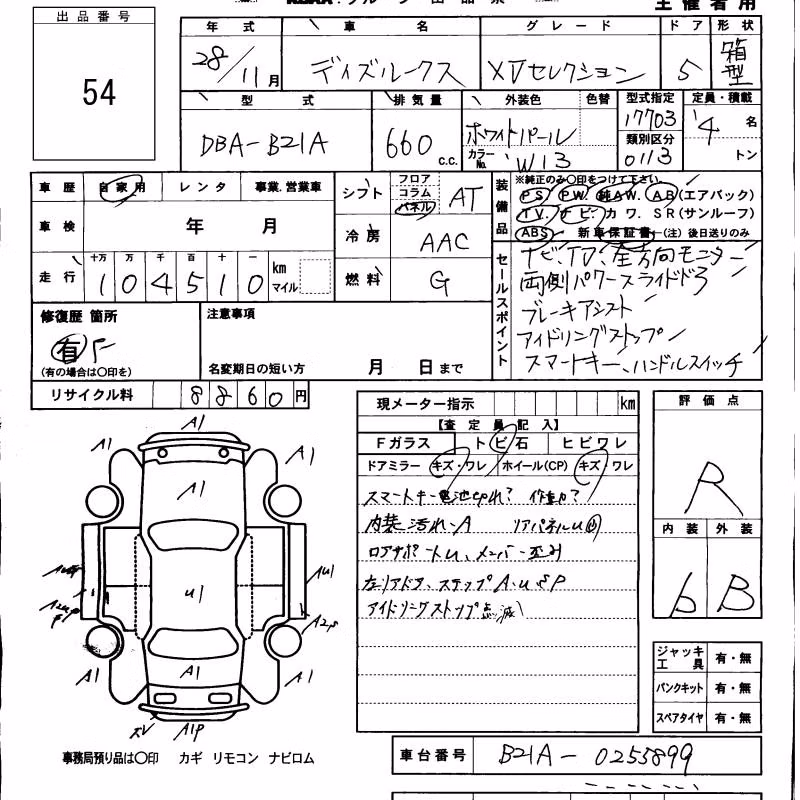 出品番号
54
主催者用
年式 車名 グレード ドア 形状
28/11月 ディズルークス XVセレクション 5 箱型
型式 排気量 外装色 色替 型式指定 定員・積載
DBA-B21A 660 c.c. ホワイトパール 17703 4名
カラーNo. W13 類別区分 0113 トン
車歴 自家用 レンタ 事業.営業車
シフト フロア コラム パネル AT
装備品 ※純正のみ〇印をつけて下さい。
PS PW. 純AW. AB(エアバック)
TV. ナビ. カワ. SR(サンルーフ)
ABS 新車保証書 (注)後日送りのみ
車検 年 月
冷房 AAC
走行 十万 万 千 百 十 一
104510 km マイル
燃料 G
セールスポイント
ナビ、TV、全方向モニター
両側パワースライドドア
ブレーキアシスト
アイドリングストップ
スマートキー、ハンドルスイッチ
修復歴 箇所
有
(有の場合は〇印を)
注意事項
名変期日の短い方 月 日まで
リサイクル料 8860円
現メーター指示 km
【査定員記入】
Fガラス トビ石 ヒビワレ
ドアミラー キズ・ワレ ホイール(CP) キズ ワレ
スマートキー電池切れ? 作動カ?
内装汚れ-A リアパネルU
ロアサポートU、メンバー歪み
左リアドア、ステップA.U&P
アイドリングストップ点滅
評価点
R
内装 外装
b B
ジャッキ工具 有・無
パンクキット 有・無
スペアタイヤ 有・無
A1
A1
A1
A1
U1
AU1
A2P
A1
A1
A1
A1P
事務局預り品は〇印 カギ リモコン ナビロム
車台番号 B21A-0255899